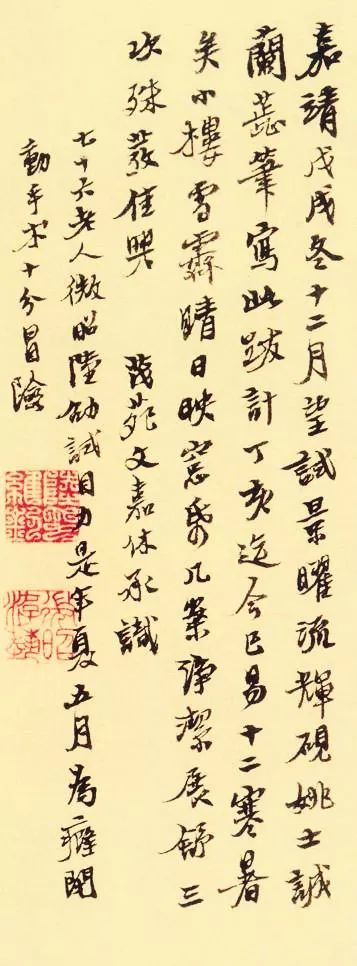 嘉靖戊戌冬十二月望試景曜流輝硯姚士誠
蘭蕊筆寫此跋計丁亥迄今已易十二寒暑
矣小樓雪霽晴日映窓帋几案淨潔展舒三
次殊發佳興 茂苑文嘉休承識
七十六老人微昭陸試目力是年夏五月為癰開
動手朮十分冒險